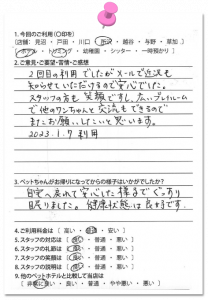 1.今回のご利用(○印を)
[店舗: 見沼 ・ 戸田 ・ 川口 所沢 越谷 ・ 与野 ・ 草加 ]
(ホテル ・ トリミング ・ 幼稚園 ・ シッター ・ 一時預かり )
2.ご意見・ご要望・苦情・ご感想
2回目の利用でしたがメールで近況も
知らせていただけるので安心でした。
スタッフの方も笑顔ですし、広いプレイルーム
で他のワンちゃんと交流もできるので
またお願いしたいと思います。
2023.1.9 利用
3.ペットちゃんがお帰りになってからの様子はいかがでしたか?
自宅へ戻れて安心した様子でぐっすり
眠りました。健康状態は良好です。
4.ご利用料金は ( 高い ・ 普通 ・ 安い )
5.スタッフの対応は( 良い ・ 普通 ・ 悪い )
6.スタッフの礼節は( 良い ・ 普通 ・ 悪い )
7.スタッフの笑顔は( 良い ・ 普通 ・ 悪い )
8.スタッフの説明は( 良い ・ 普通 ・ 悪い )
9.他のペットホテルと比較して当店は
(非常に良い ・ 良い ・ 普通 ・ やや悪い ・ 悪い )